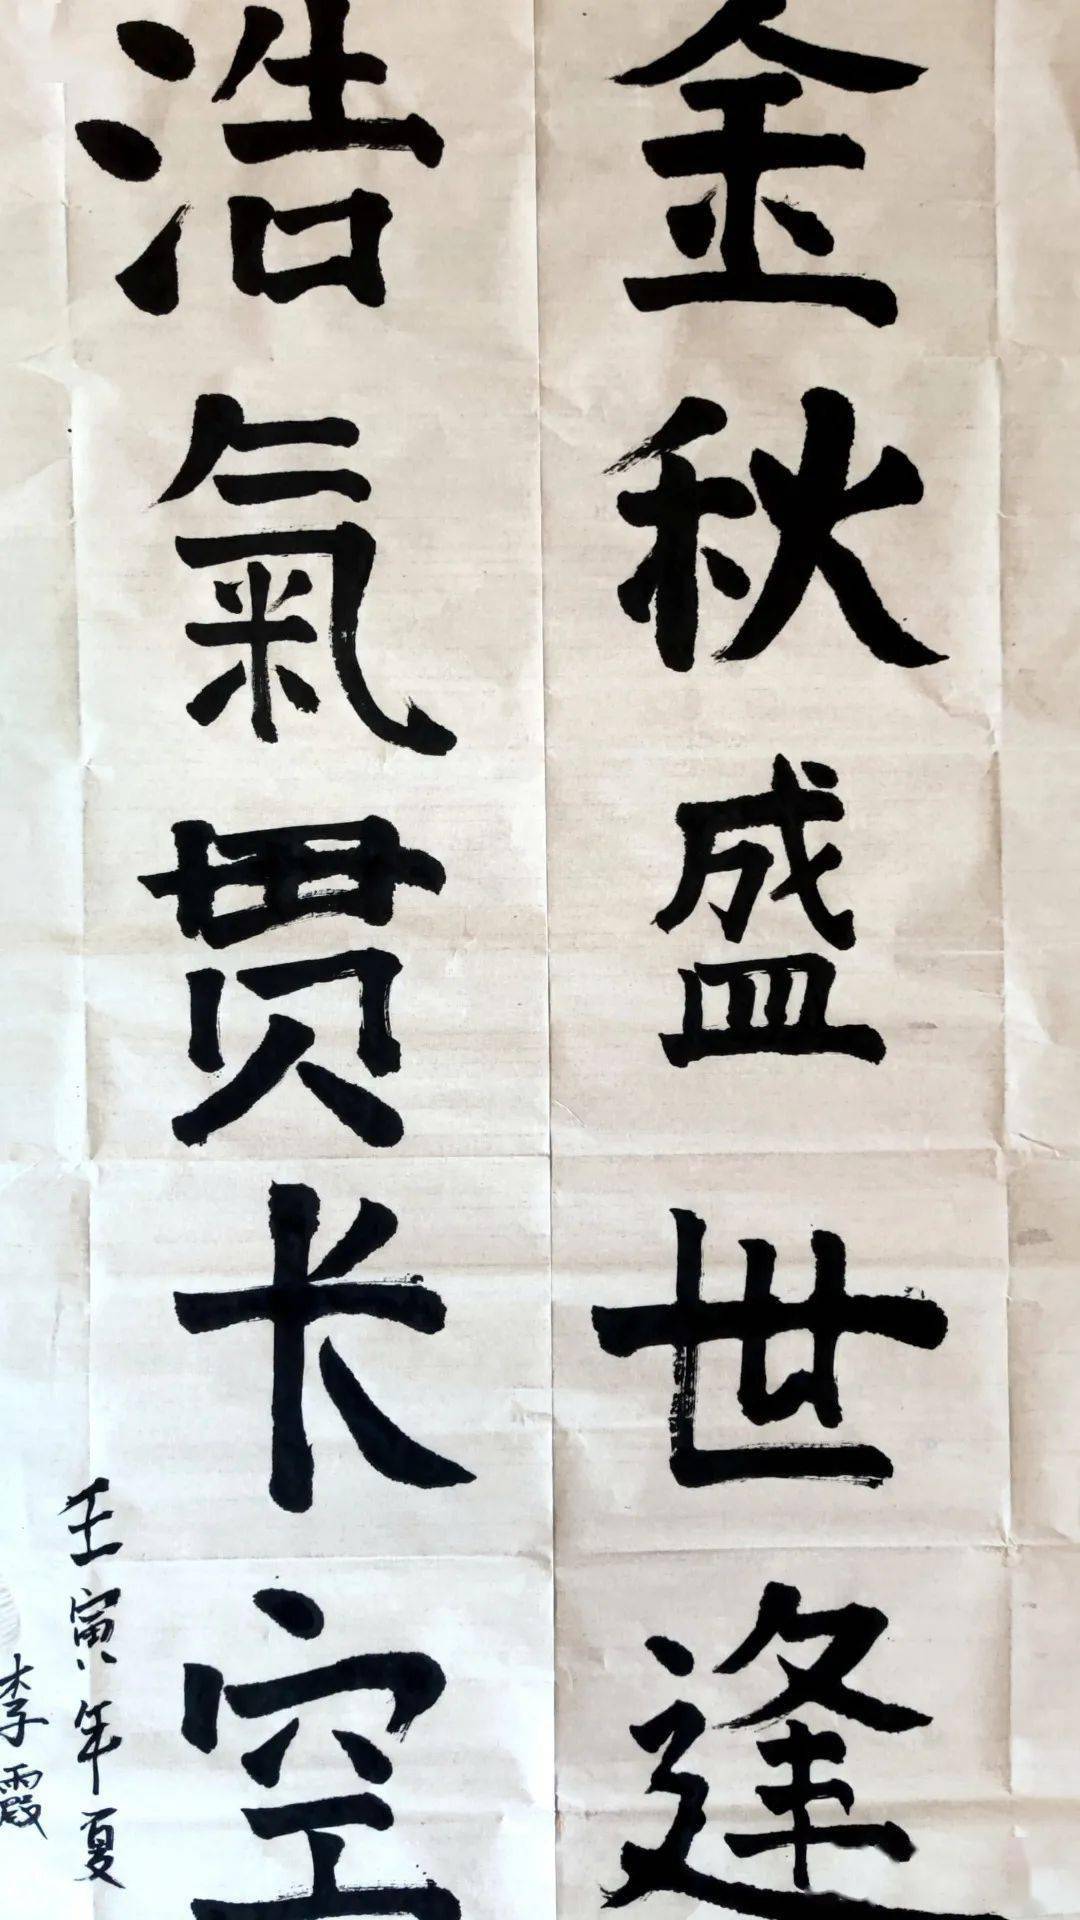 金秋盛世逢
浩氣贯长空
壬寅年夏
李霞